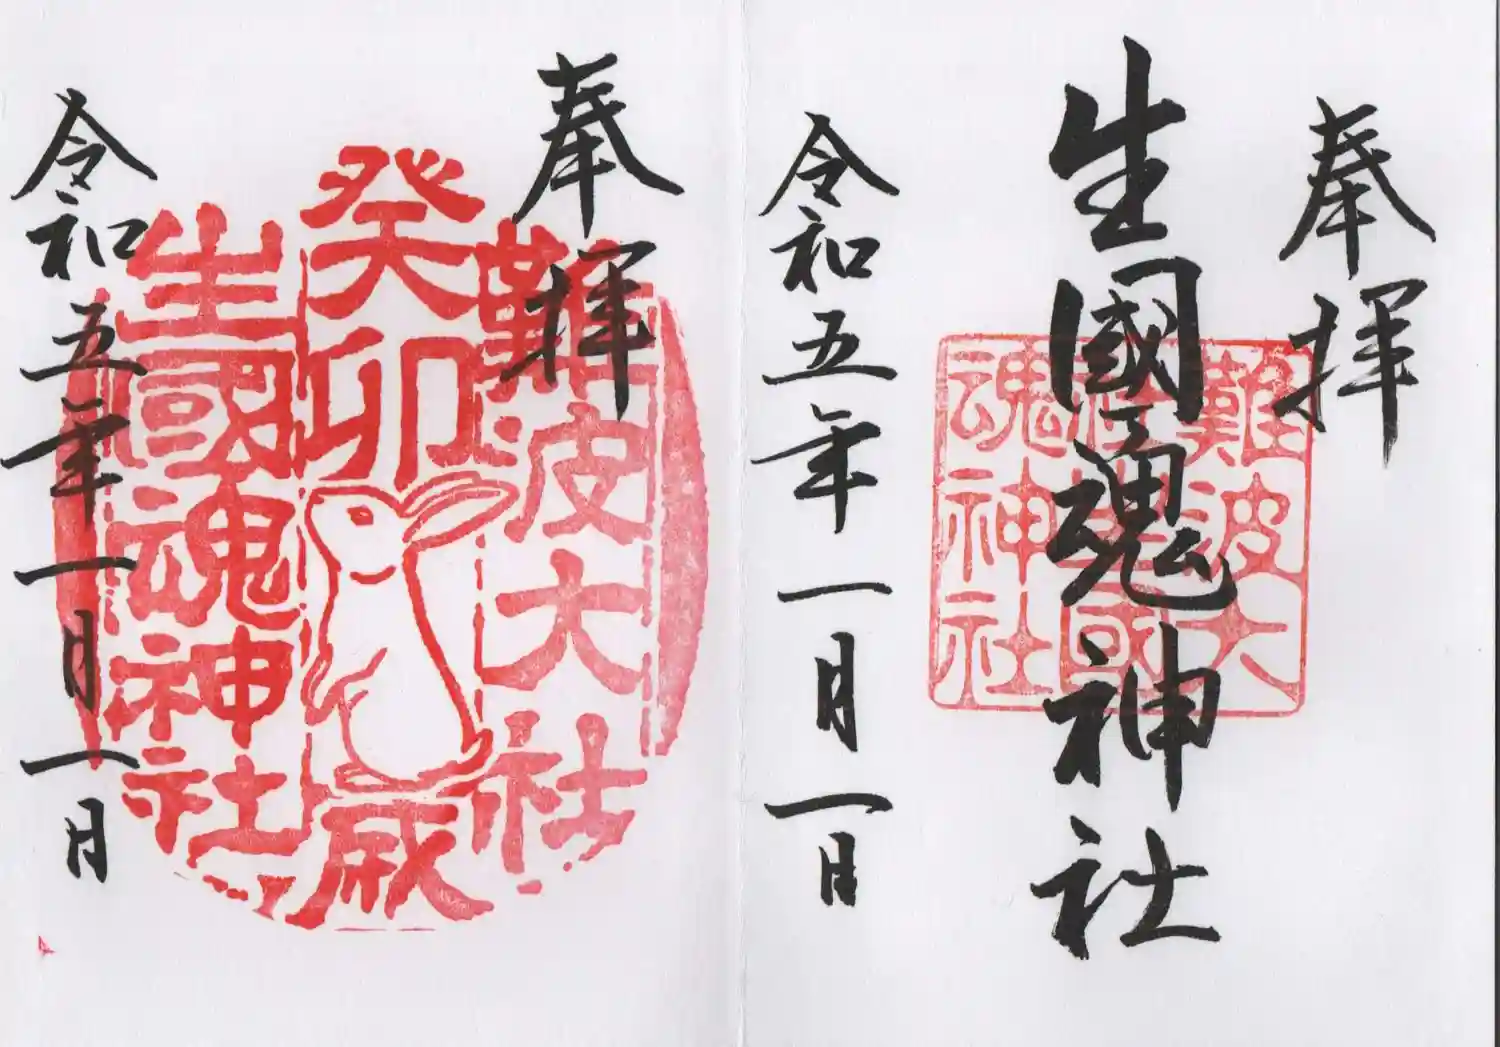 奉拝
生國魂神社
難波大
社生國
魂神社
令和五年一月一日
奉拝
難波大社
癸卯
生國魂神社
令和五年一月一日